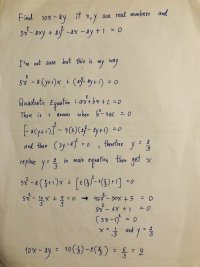 Find 10x - 2y if x, y are real numbers and
5x² - 2xy + 2y² - 2x - 2y + 1 = 0
I'm not sure but this is my way
5x² - 2(y+1)x + (2y²-2y+1) = 0
Quadratic Equation : ax²+bx+c = 0
There is 1 answer when b²-4ac = 0
[-2(y+1)]² - 4(5)(2y²-2y+1) = 0
and then (3y-2)² = 0 , therefore y = 2/3
replace y = 2/3 in main equation then get x
5x² - 2(2/3+1)x + [2(2/3)²-2(2/3)+1] = 0
5x² - 10/3 x + 5/9 = 0 → 45x² - 30x + 5 = 0
9x² - 6x + 1 = 0
(3x-1)² = 0
x = 1/3 and y = 2/3
10x - 2y = 10(1/3) - 2(2/3) = 6/3 = 2